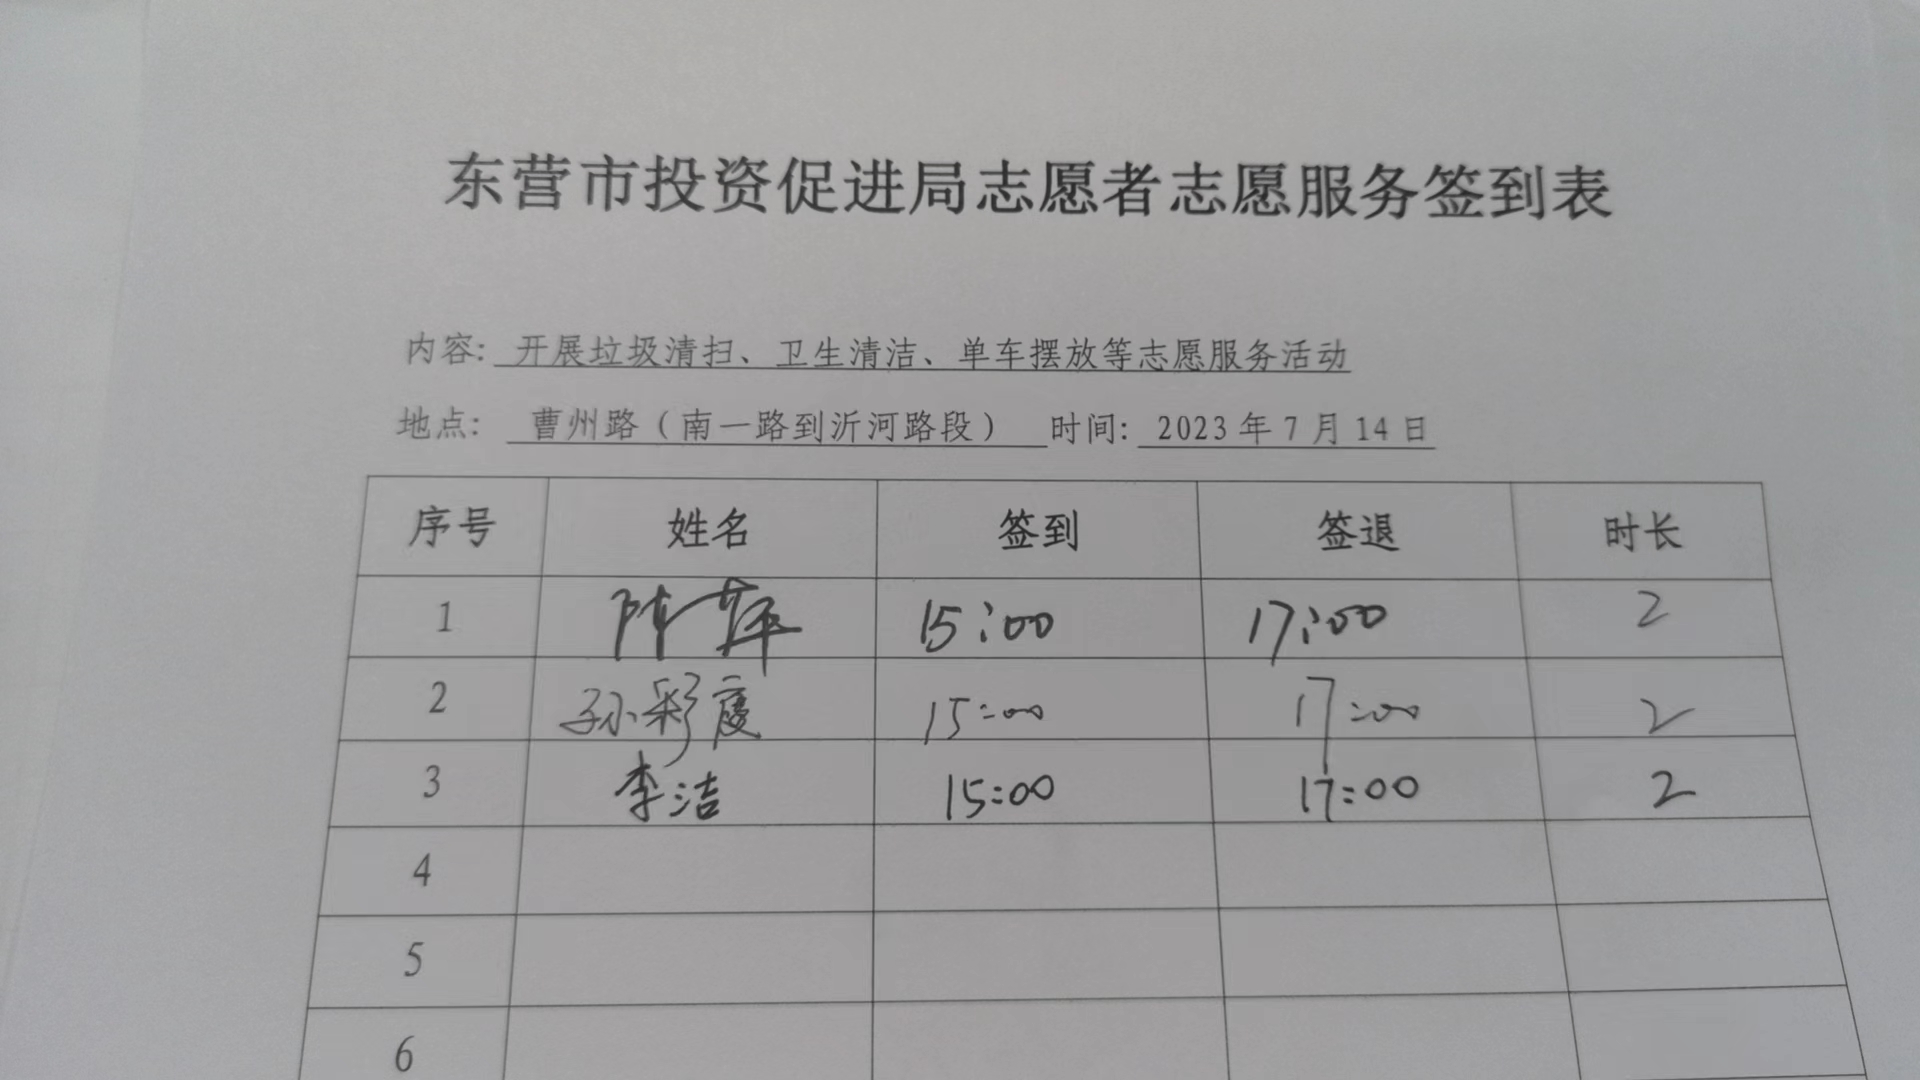 东营市投资促进局志愿者志愿服务签到表
内容: 开展垃圾清扫、卫生清洁、单车摆放等志愿服务活动
地点: 曹州路（南一路到沂河路段） 时间: 2023 年 7 月 14 日
序号 姓名 签到 签退 时长
1 陈萍 15:00 17:00 2
2 孙彩霞 15:00 17:00 2
3 李洁 15:00 17:00 2
4
5
6